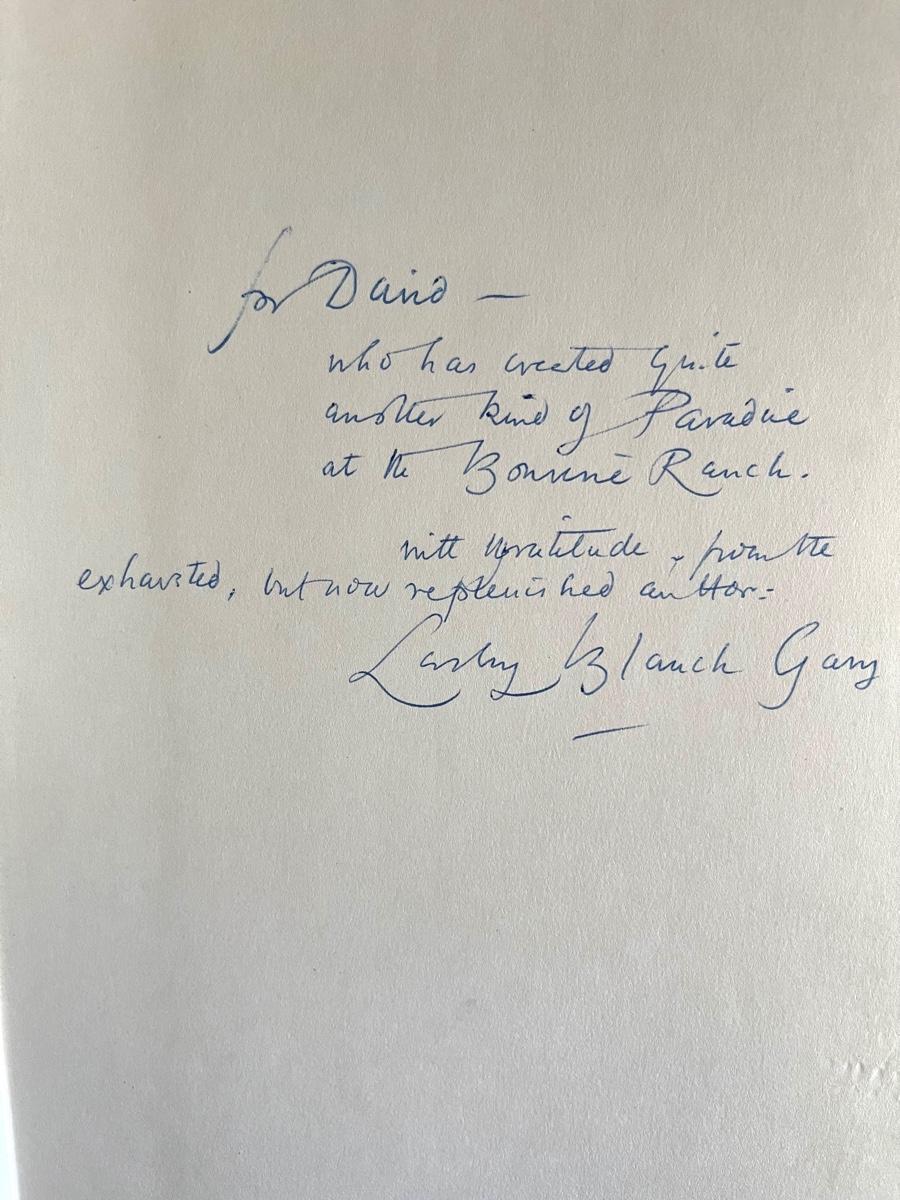 for David —
who has created quite
another kind of Paradise
at the Ranch.
with gratitude, from the
exhausted, but now replenished author:-
Lesley Blanch Gary